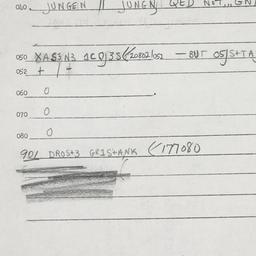 010. JUNGEN // JUNGN QED NOT... GN
050 XASSN3 1C0J3S (20802/052 — BUT 05JS+TA
052 + / +
060 0
070 0
080 0
901 DROST3 GRIS+ANK (177080